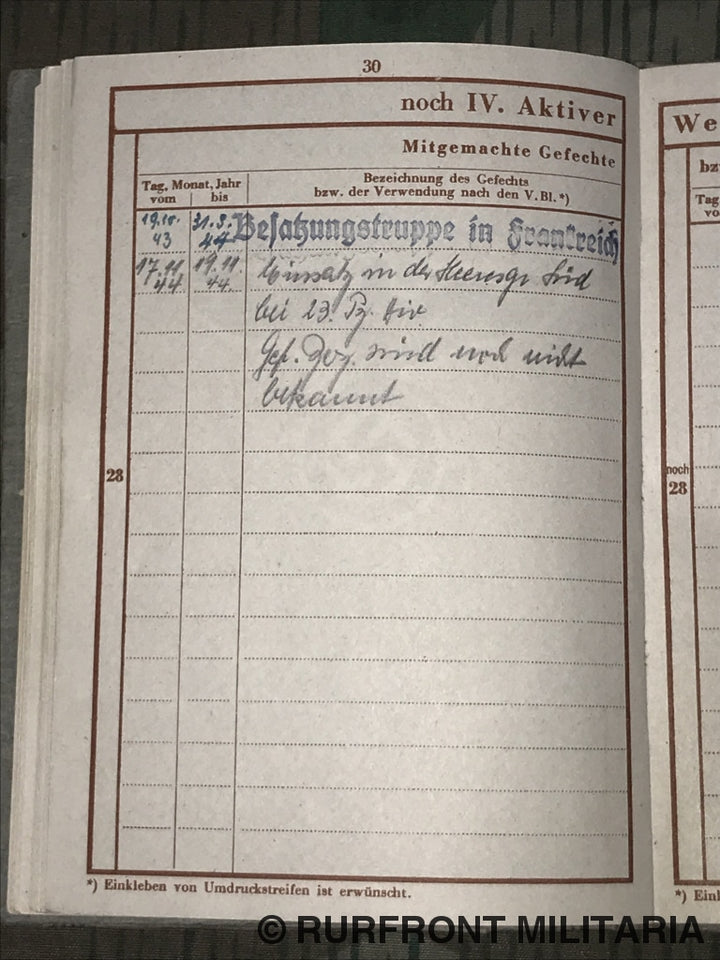 30
noch IV. Aktiver
Mitgemachte Gefechte
Tag, Monat, Jahr
vom bis
Bezeichnung des Gefechts
bzw. der Verwendung nach den V.Bl.*)
19.10. 43 31.3. 44 Besatzungstruppe in Frankreich
17.11. 44 19.11. 44. Einsatz in der Heeresgr. Süd
bei 23. Pz. Div
Gef. Bez. sind noch nicht
bekannt
28
*) Einkleben von Umdruckstreifen ist erwünscht.
We
bz
Tag
vo
noch
28
*) Einl
© RURFRONT MILITARIA